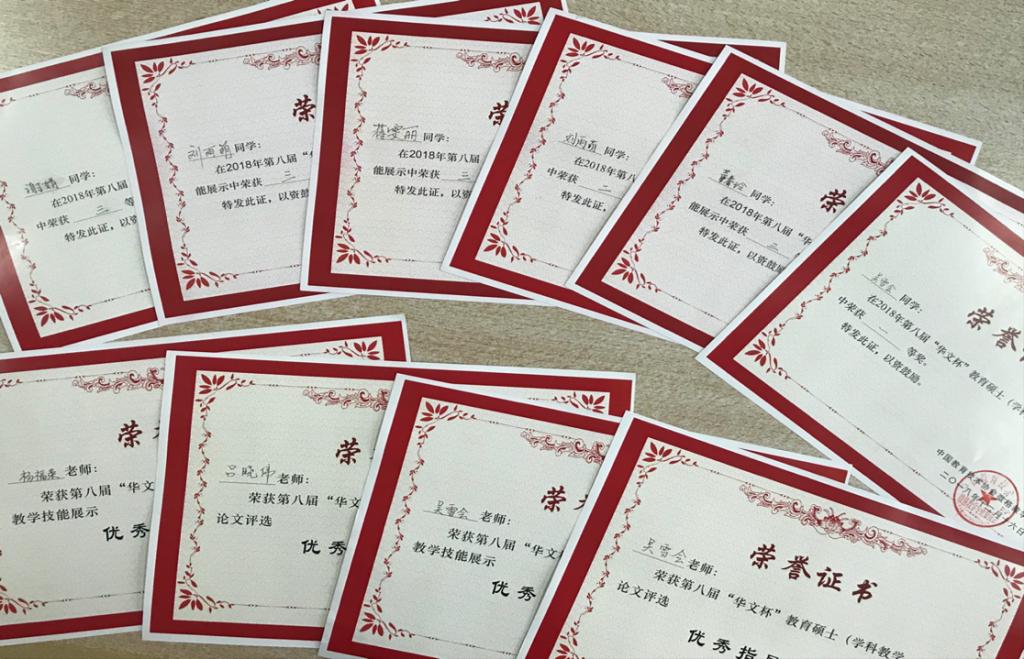 同学:
在2018年第八届
中荣获 三 等
特发此证,以资
荣
刘雨萌 同学:
在2018年第八届“
能展示中荣获 三
特发此证,以资
荣
同学:
在2018年第八届
能展示中荣获 二
特发此证,以
刘雨萌 同学:
在2018年第八届
中荣获 二
特发此证,
荣
同学:
在2018年第八届“华
能展示中荣获 三
特发此证,以资鼓励
荣誉
吴雪会 同学:
在2018年第八届“华文杯”教育硕士(学科
中荣获 一 等奖。
特发此证,以资鼓励。
荣
杨福义 老师:
荣获第八届“华文
教学技能展示
优秀
荣
吕晓伟 老师:
荣获第八届“华文
论文评选
优秀
荣
吴雪会 老师:
荣获第八届“华文
教学技能展示
优秀
荣誉证书
吴雪会 老师:
荣获第八届“华文杯”教育硕士(学科教学
论文评选
优秀指